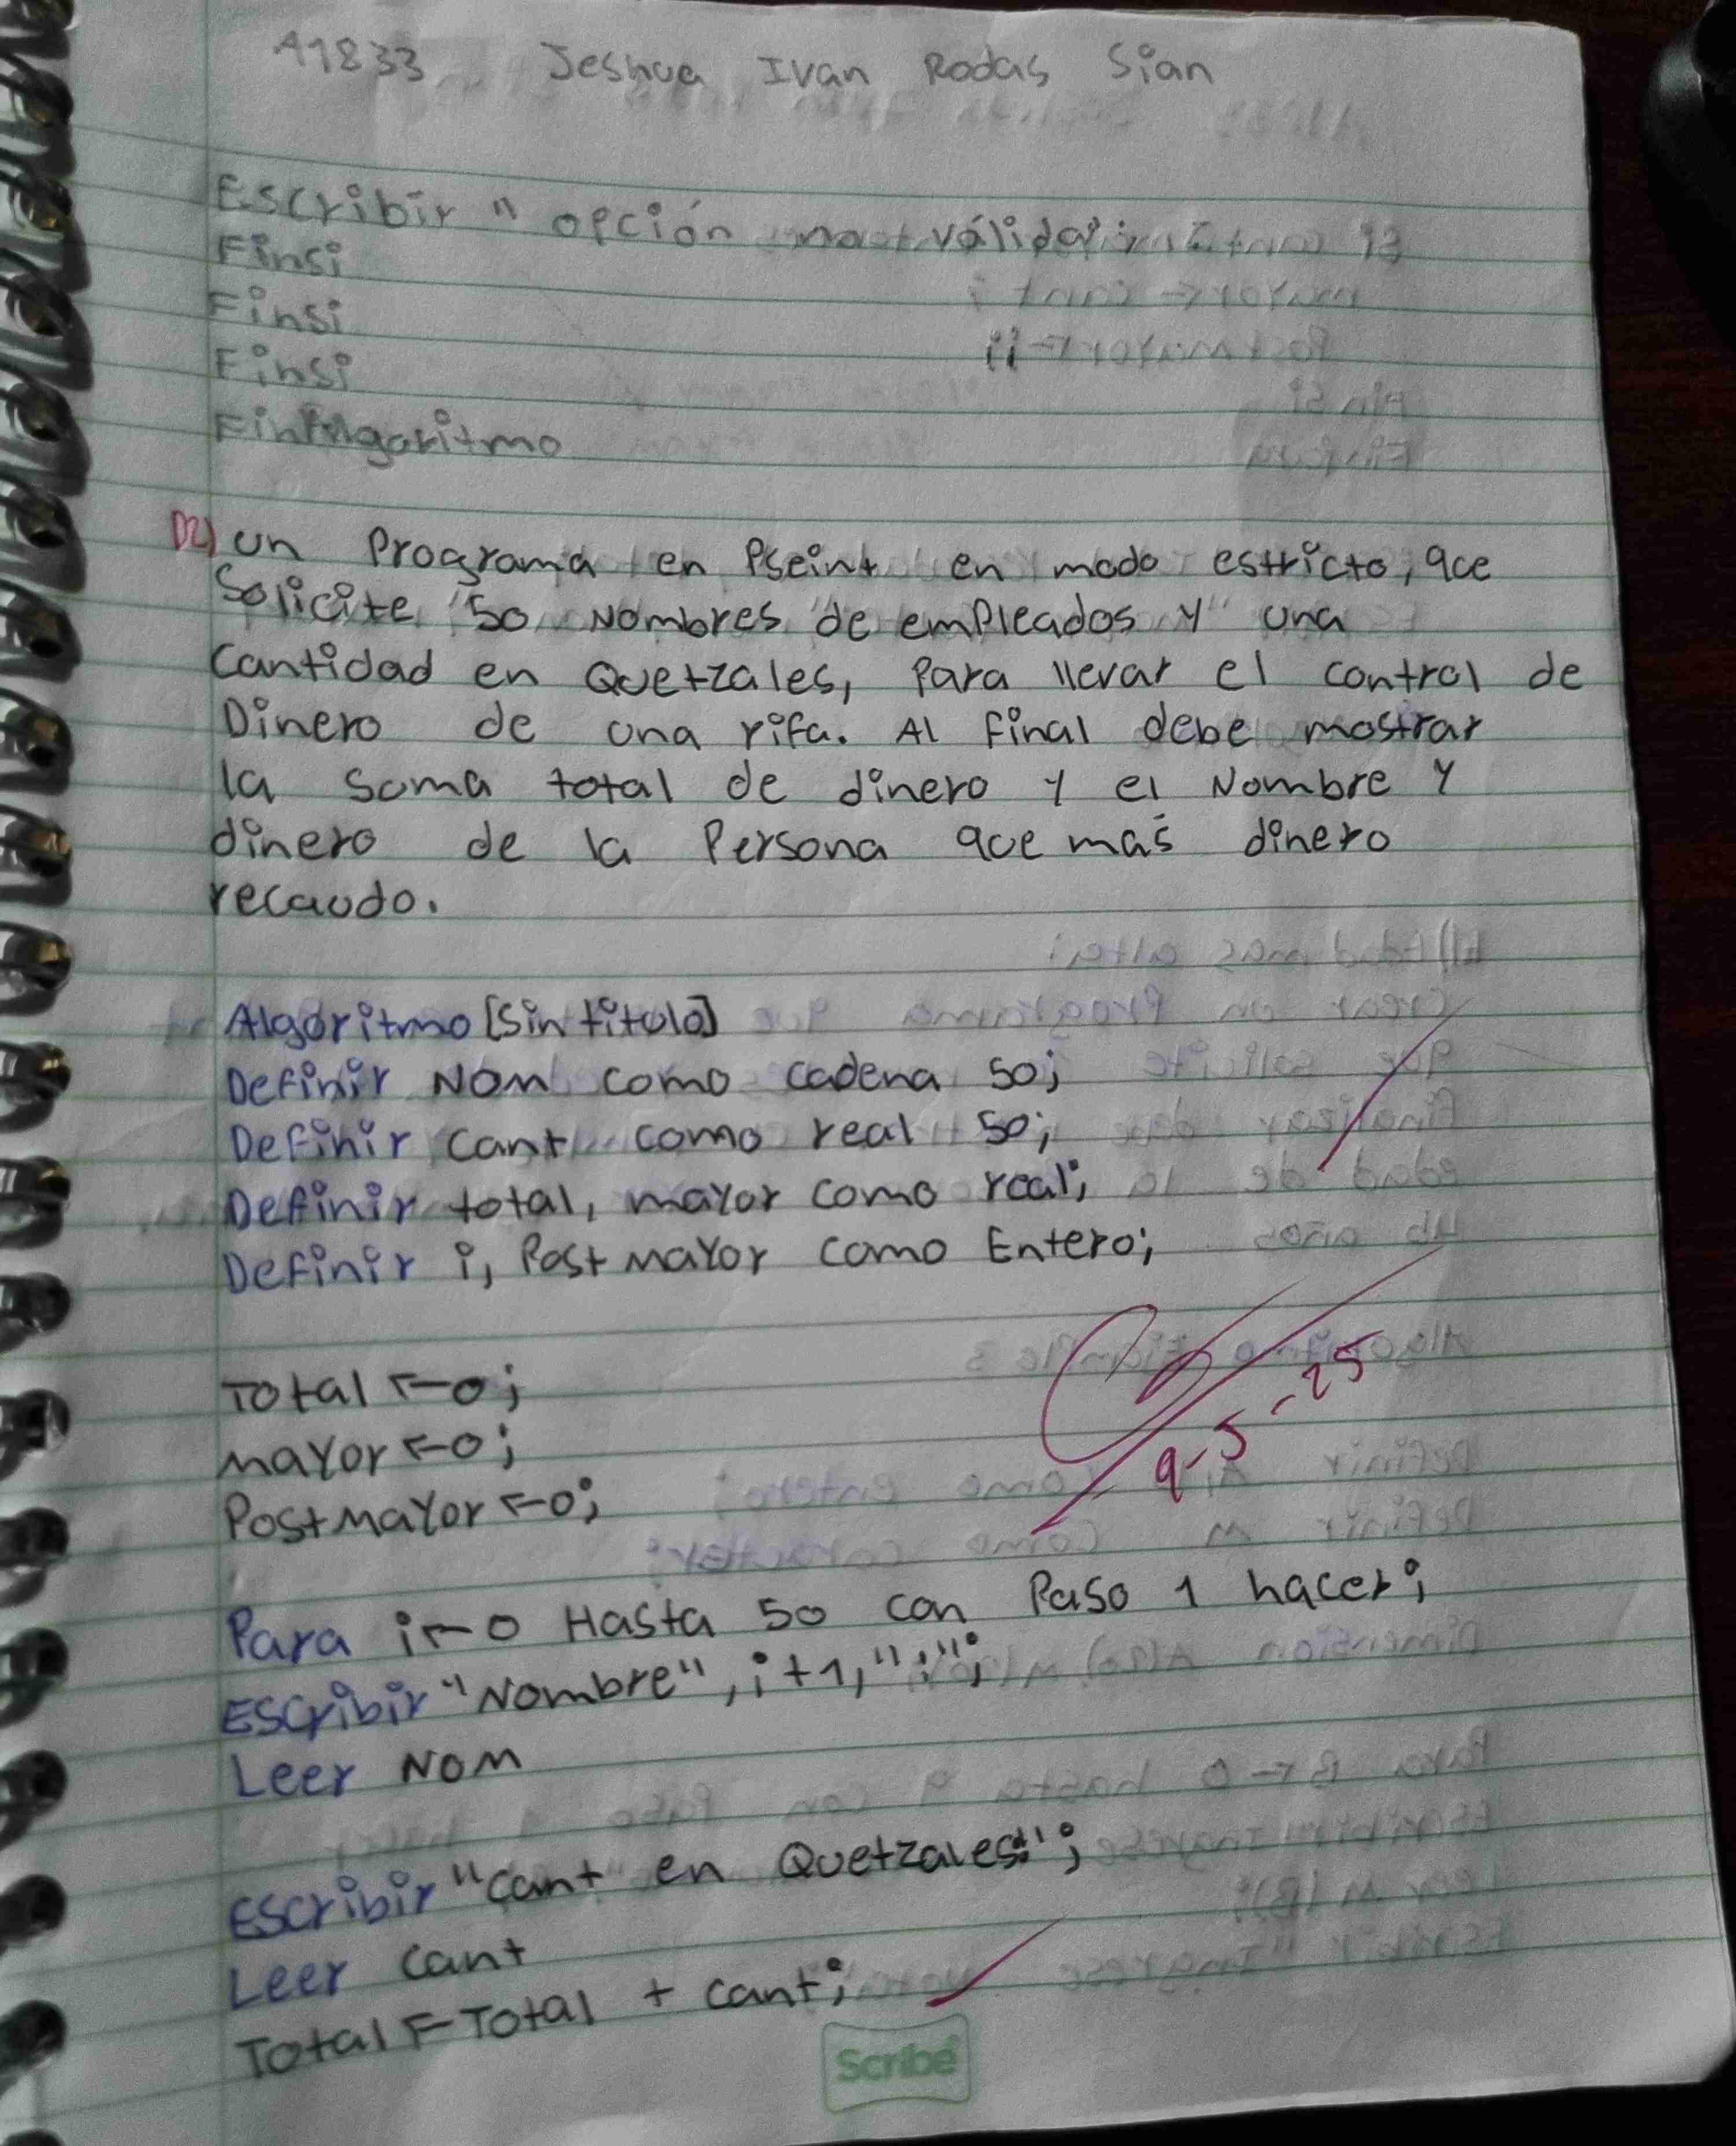 A1833 Jeshua Ivan Rodas Sian
Escribir " opción no válida";
Finsi
Finsi
Finsi
FinAlgoritmo
D2) un Programa en Pseint en modo estricto, que
Solicite 50 Nombres de empleados y una
Cantidad en Quetzales, Para llevar el control de
Dinero de una rifa. Al final debe mostrar
la suma total de dinero y el Nombre y
dinero de la Persona que más dinero
recaudo.
Algoritmo [Sin titulo]
Definir Nom como cadena 50;
Definir Cant como real 50;
Definir total, mayor como real;
Definir i, Post mayor como Entero;
Total ← 0;
mayor ← 0;
Postmayor ← 0;
9-5-25
Para i ← 0 Hasta 50 con Paso 1 hacer;
Escribir "Nombre", i+1, ":";
Leer Nom
Escribir "Cant en Quetzales:";
Leer Cant
Total ← Total + cant;
Scribe